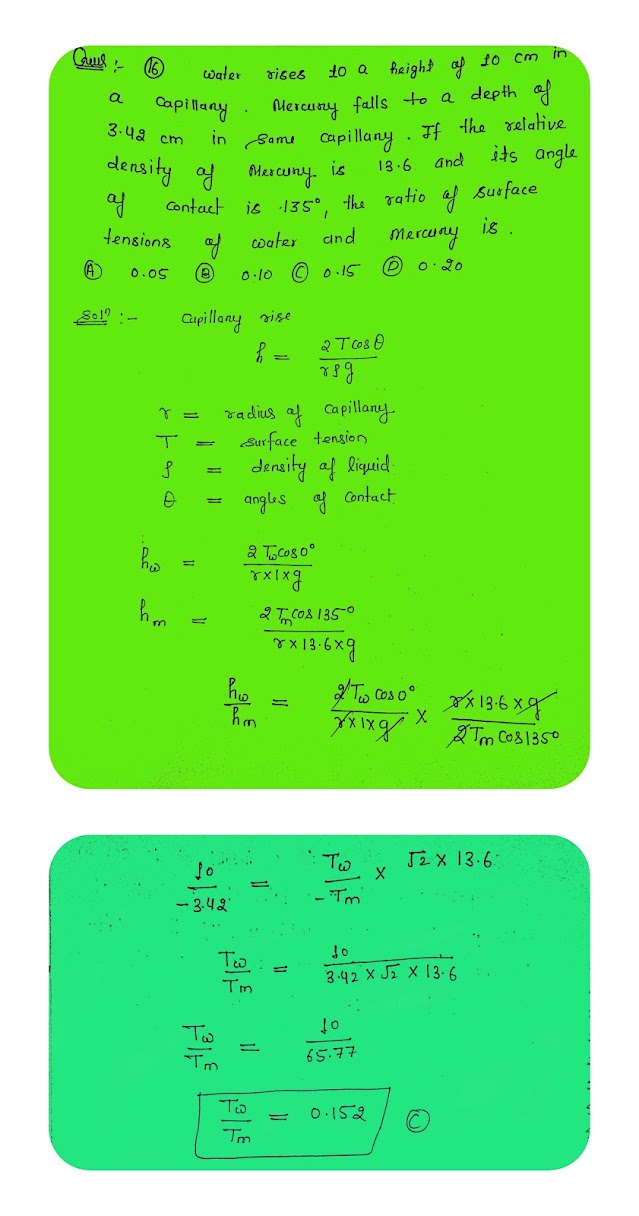 Ques :- (16) water rises to a height of 10 cm in
a capillary. Mercury falls to a depth of
3.42 cm in same capillary. If the relative
density of Mercury is 13.6 and its angle
of contact is 135°, the ratio of surface
tensions of water and mercury is.
(A) 0.05 (B) 0.10 (C) 0.15 (D) 0.20
Solⁿ :- Capillary rise
h = 2Tcosθ / rρg
r = radius of capillary
T = surface tension
ρ = density of liquid
θ = angles of contact
h_w = 2T_w cos0° / r×1×g
h_m = 2T_m cos135° / r×13.6×g
h_w / h_m = 2T_w cos0° / r×1×g × r×13.6×g / 2T_m cos135°
10 / -3.42 = T_w / -T_m × √2 × 13.6
T_w / T_m = 10 / 3.42 × √2 × 13.6
T_w / T_m = 10 / 65.77
T_w / T_m = 0.152 (C)